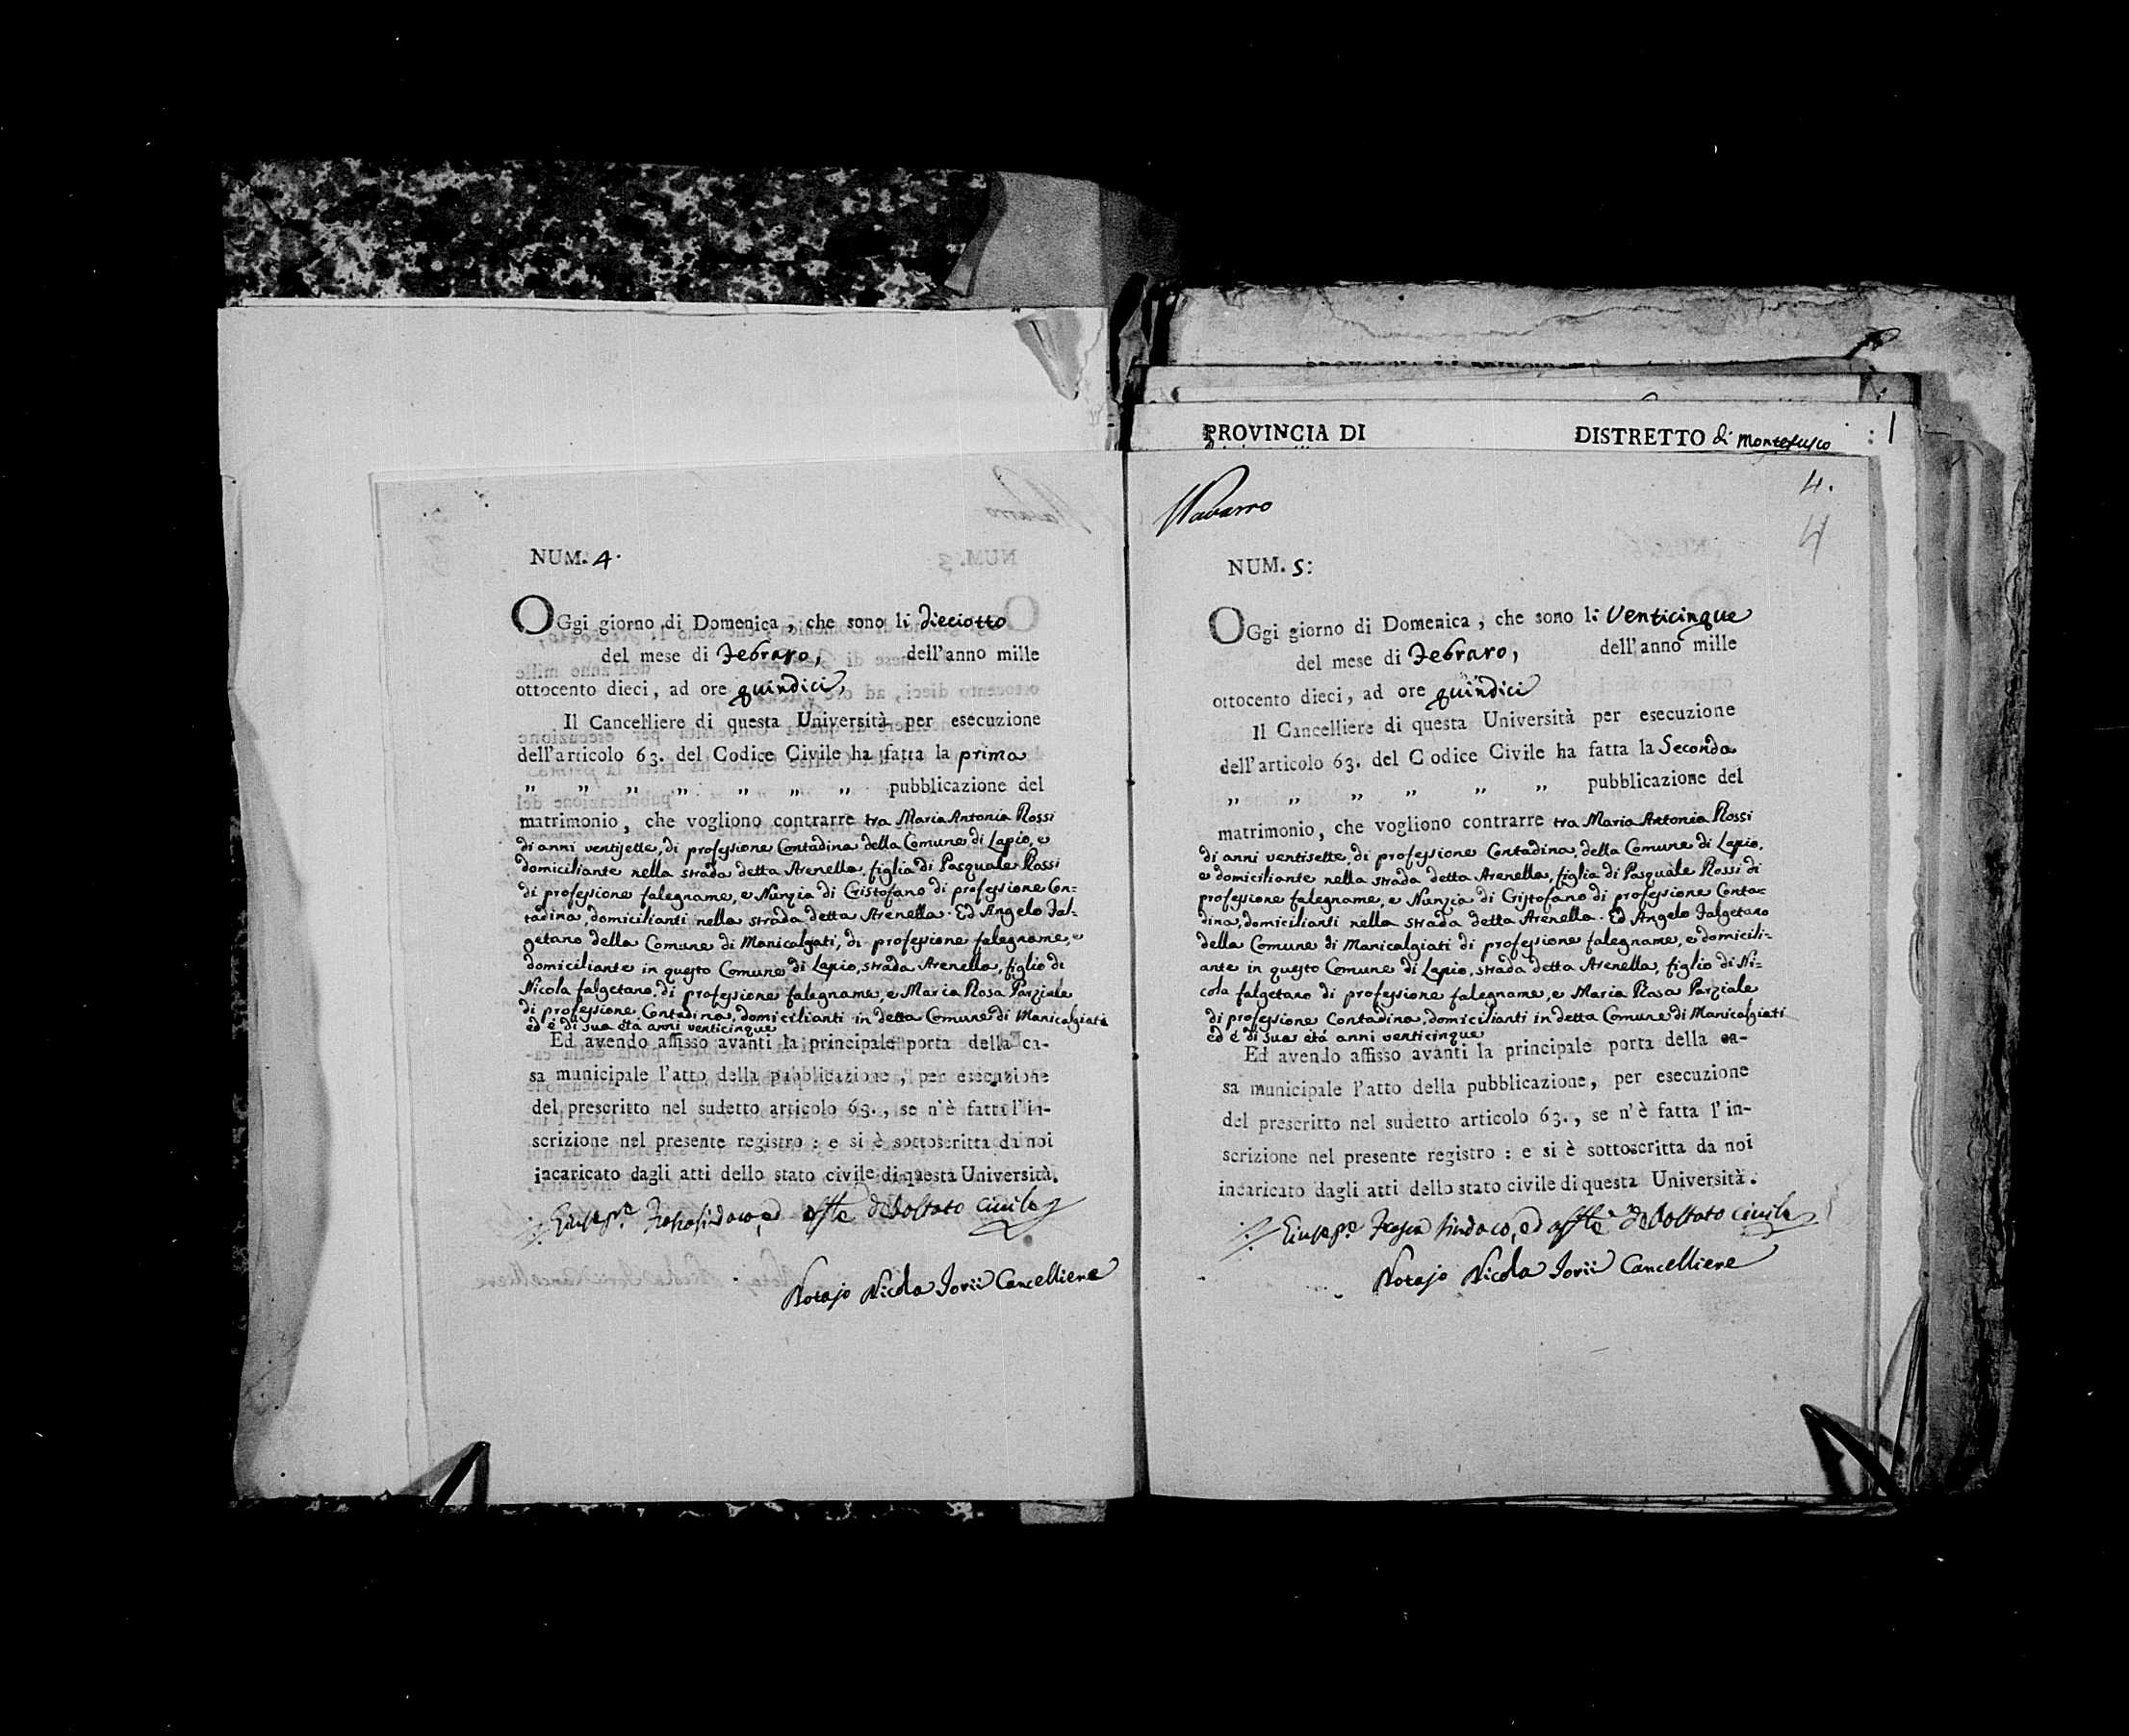 NUM. 4.
OGgi giorno di Domenica, che sono li dieciotto
del mese di Febraro, dell'anno mille
ottocento dieci, ad ore quindici,
Il Cancelliere di questa Università per esecuzione
dell'articolo 63. del Codice Civile ha fatta la prima
" " " " " " " pubblicazione del
matrimonio, che vogliono contrarre tra Maria Antonia Rossi
di anni ventisette, di professione Contadina della Comune di Lapio, e
domiciliante nella strada detta Arenella, figlia di Pasquale Rossi
di professione falegname, e Nunzia di Cristofano di professione Con=
tadina, domicilianti nella strada detta Arenella. Ed Angelo Fal=
getano della Comune di Manicalgiati, di professione falegname, e
domiciliante in questo Comune di Lapio, strada Arenella, figlio di
Nicola falgetano, di professione falegname, e Maria Rosa Parziale
di professione Contadina, domicilianti in detta Comune di Manicalgiati
ed è di sua età anni venticinque
Ed avendo affisso avanti la principale porta della ca-
sa municipale l'atto della pubblicazione, per esecuzione
del prescritto nel sudetto articolo 63., se n'è fatta l'in-
scrizione nel presente registro: e si è sottoscritta da noi
incaricato dagli atti dello stato civile di questa Università.
Giusep.e sindaco, ed offle dello stato civile
Notajo Nicola Iorii Cancelliere
PROVINCIA DI DISTRETTO di Montefusco
1
Navarro
4.
4
NUM. 5:
OGgi giorno di Domenica, che sono li Venticinque
del mese di Febraro, dell'anno mille
ottocento dieci, ad ore quindici
Il Cancelliere di questa Università per esecuzione
dell'articolo 63. del Codice Civile ha fatta la Seconda
" " " " " " pubblicazione del
matrimonio, che vogliono contrarre tra Maria Antonia Rossi
di anni ventisette, di professione Contadina, della Comune di Lapio,
e domiciliante nella strada detta Arenella, figlia di Pasquale Rossi di
professione falegname, e Nunzia di Cristofano di professione Conta=
dina, domicilianti nella strada detta Arenella. Ed Angelo Falgetano
della Comune di Manicalgiati di professione falegname, e domicili=
ante in questo Comune di Lapio, strada detta Arenella, figlio di Ni=
cola falgetano di professione falegname, e Maria Rosa Parziale
di professione Contadina, domicilianti in detta Comune di Manicalgiati
ed è di sua età anni venticinque
Ed avendo affisso avanti la principale porta della ca-
sa municipale l'atto della pubblicazione, per esecuzione
del prescritto nel sudetto articolo 63., se n'è fatta l'in-
scrizione nel presente registro: e si è sottoscritta da noi
incaricato dagli atti dello stato civile di questa Università.
Giusep.e sindaco, ed offle dello stato civile
Notajo Nicola Iorii Cancelliere